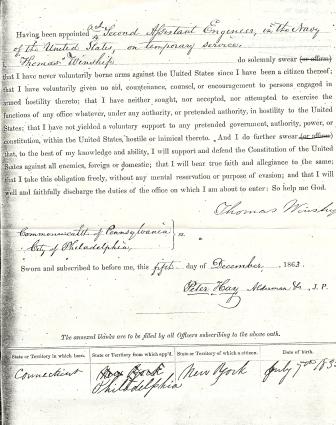 Having been appointed a Second Assistant Engineer, in the Navy
of the United States, on temporary service.
I, Thomas Winship do solemnly swear (or affirm)
that I have never voluntarily borne arms against the United States since I have been a citizen thereof;
that I have voluntarily given no aid, countenance, counsel, or encouragement to persons engaged in
armed hostility thereto; that I have neither sought, nor accepted, nor attempted to exercise the
functions of any office whatever, under any authority, or pretended authority, in hostility to the United
States; that I have not yielded a voluntary support to any pretended government, authority, power, or
constitution, within the United States, hostile or inimical thereto. And I do further swear (or affirm)
that, to the best of my knowledge and ability, I will support and defend the Constitution of the United
States against all enemies, foreign or domestic; that I will bear true faith and allegiance to the same;
that I take this obligation freely, without any mental reservation or purpose of evasion; and that I will
well and faithfully discharge the duties of the office on which I am about to enter: So help me God.
Thomas Winship
Commonwealth of Pennsylvania
City of Philadelphia, } ss.
Sworn and subscribed to before me, this fifth day of December, 1863.
Peter Hay Alderman &c, J.P.
The annexed blanks are to be filled by all Officers subscribing to the above oath.
State or Territory in which born. State or Territory from which app'd. State or Territory of which a citizen. Date of birth.
Connecticut New York New York July 7th
Philadelphia